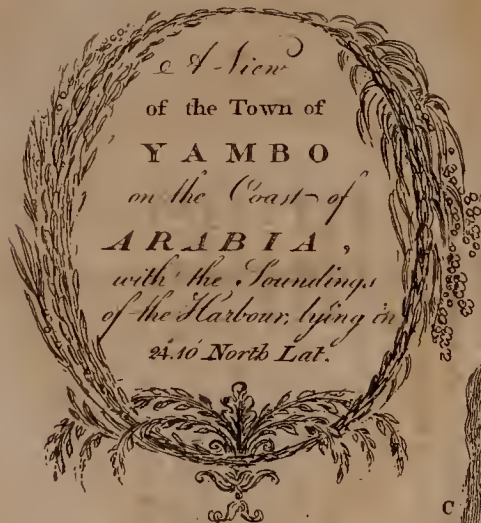 A View
of the Town of
YAMBO
on the Coast of
ARABIA,
with the Soundings
of the Harbour, lying in
24°.10' North Lat.
C